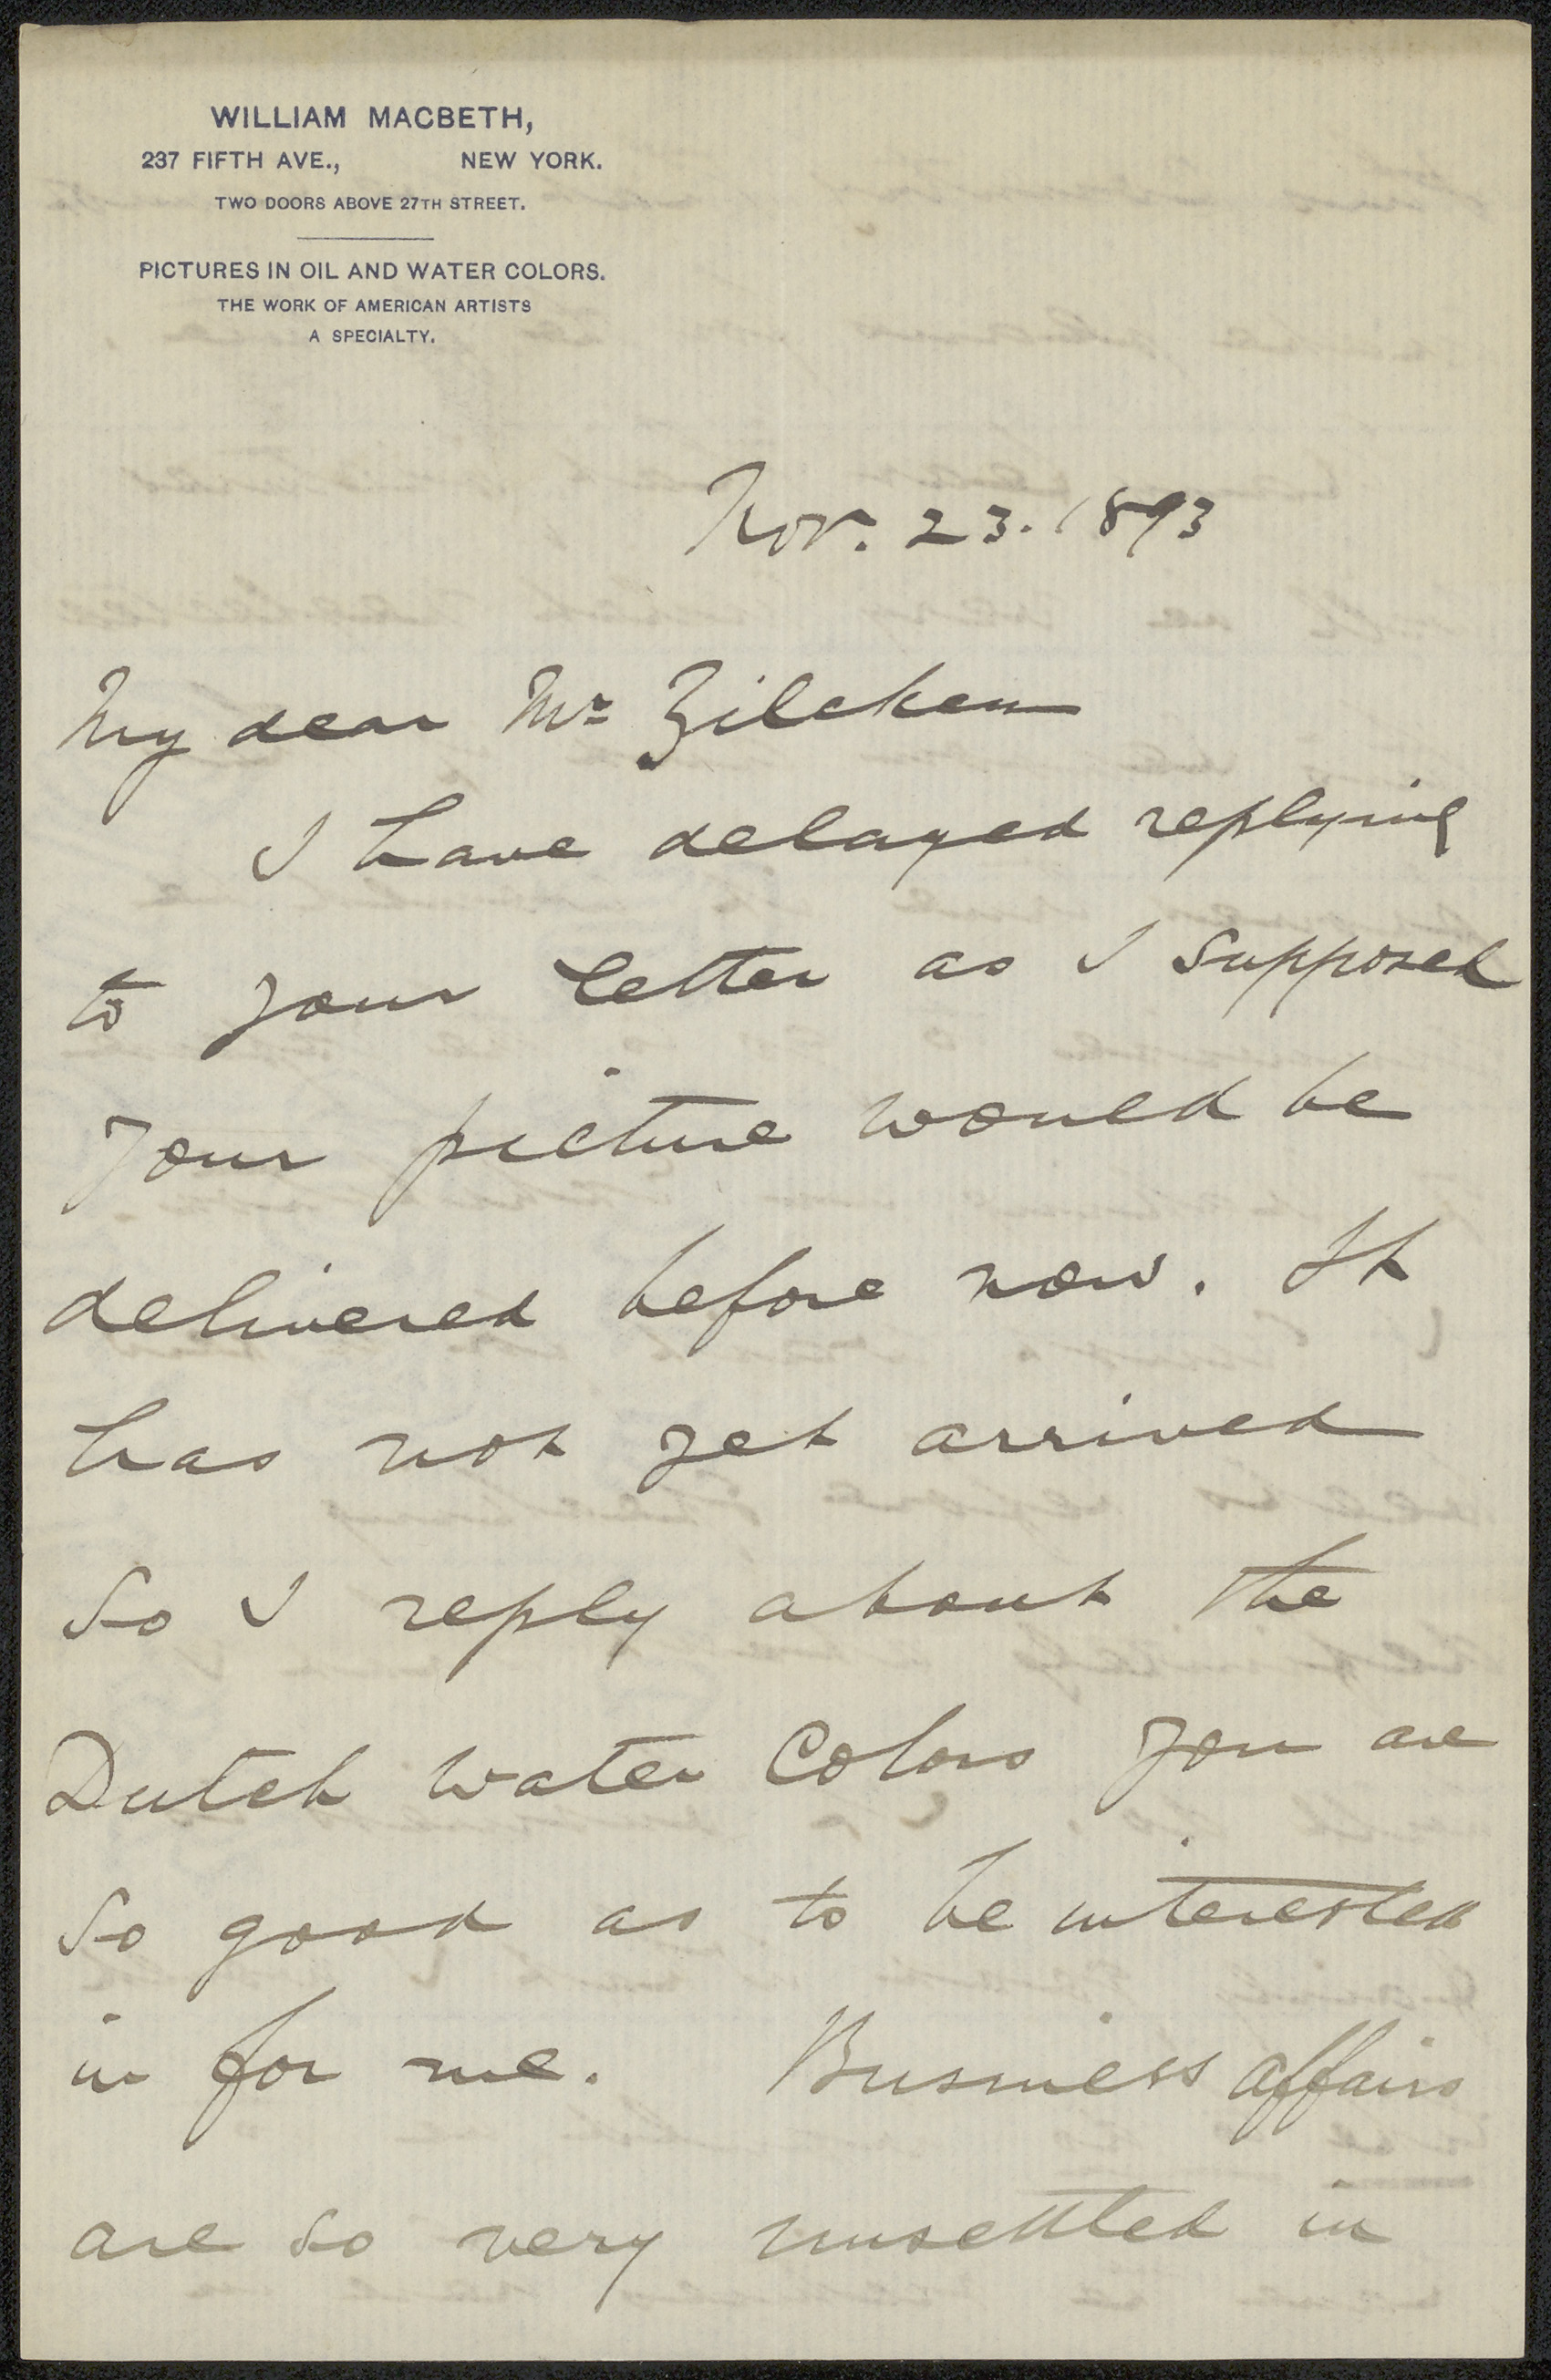 WILLIAM MACBETH,
237 FIFTH AVE., NEW YORK.
TWO DOORS ABOVE 27TH STREET.
PICTURES IN OIL AND WATER COLORS.
THE WORK OF AMERICAN ARTISTS
A SPECIALTY.
Nov. 23. 1893
My dear Mr Zilcken
I have delayed replying
to your letter as I supposed
your picture would be
delivered before now. It
has not yet arrived
so I reply about the
Dutch water Colors you are
so good as to be interested
in for me. Business affairs
are so very unsettled in